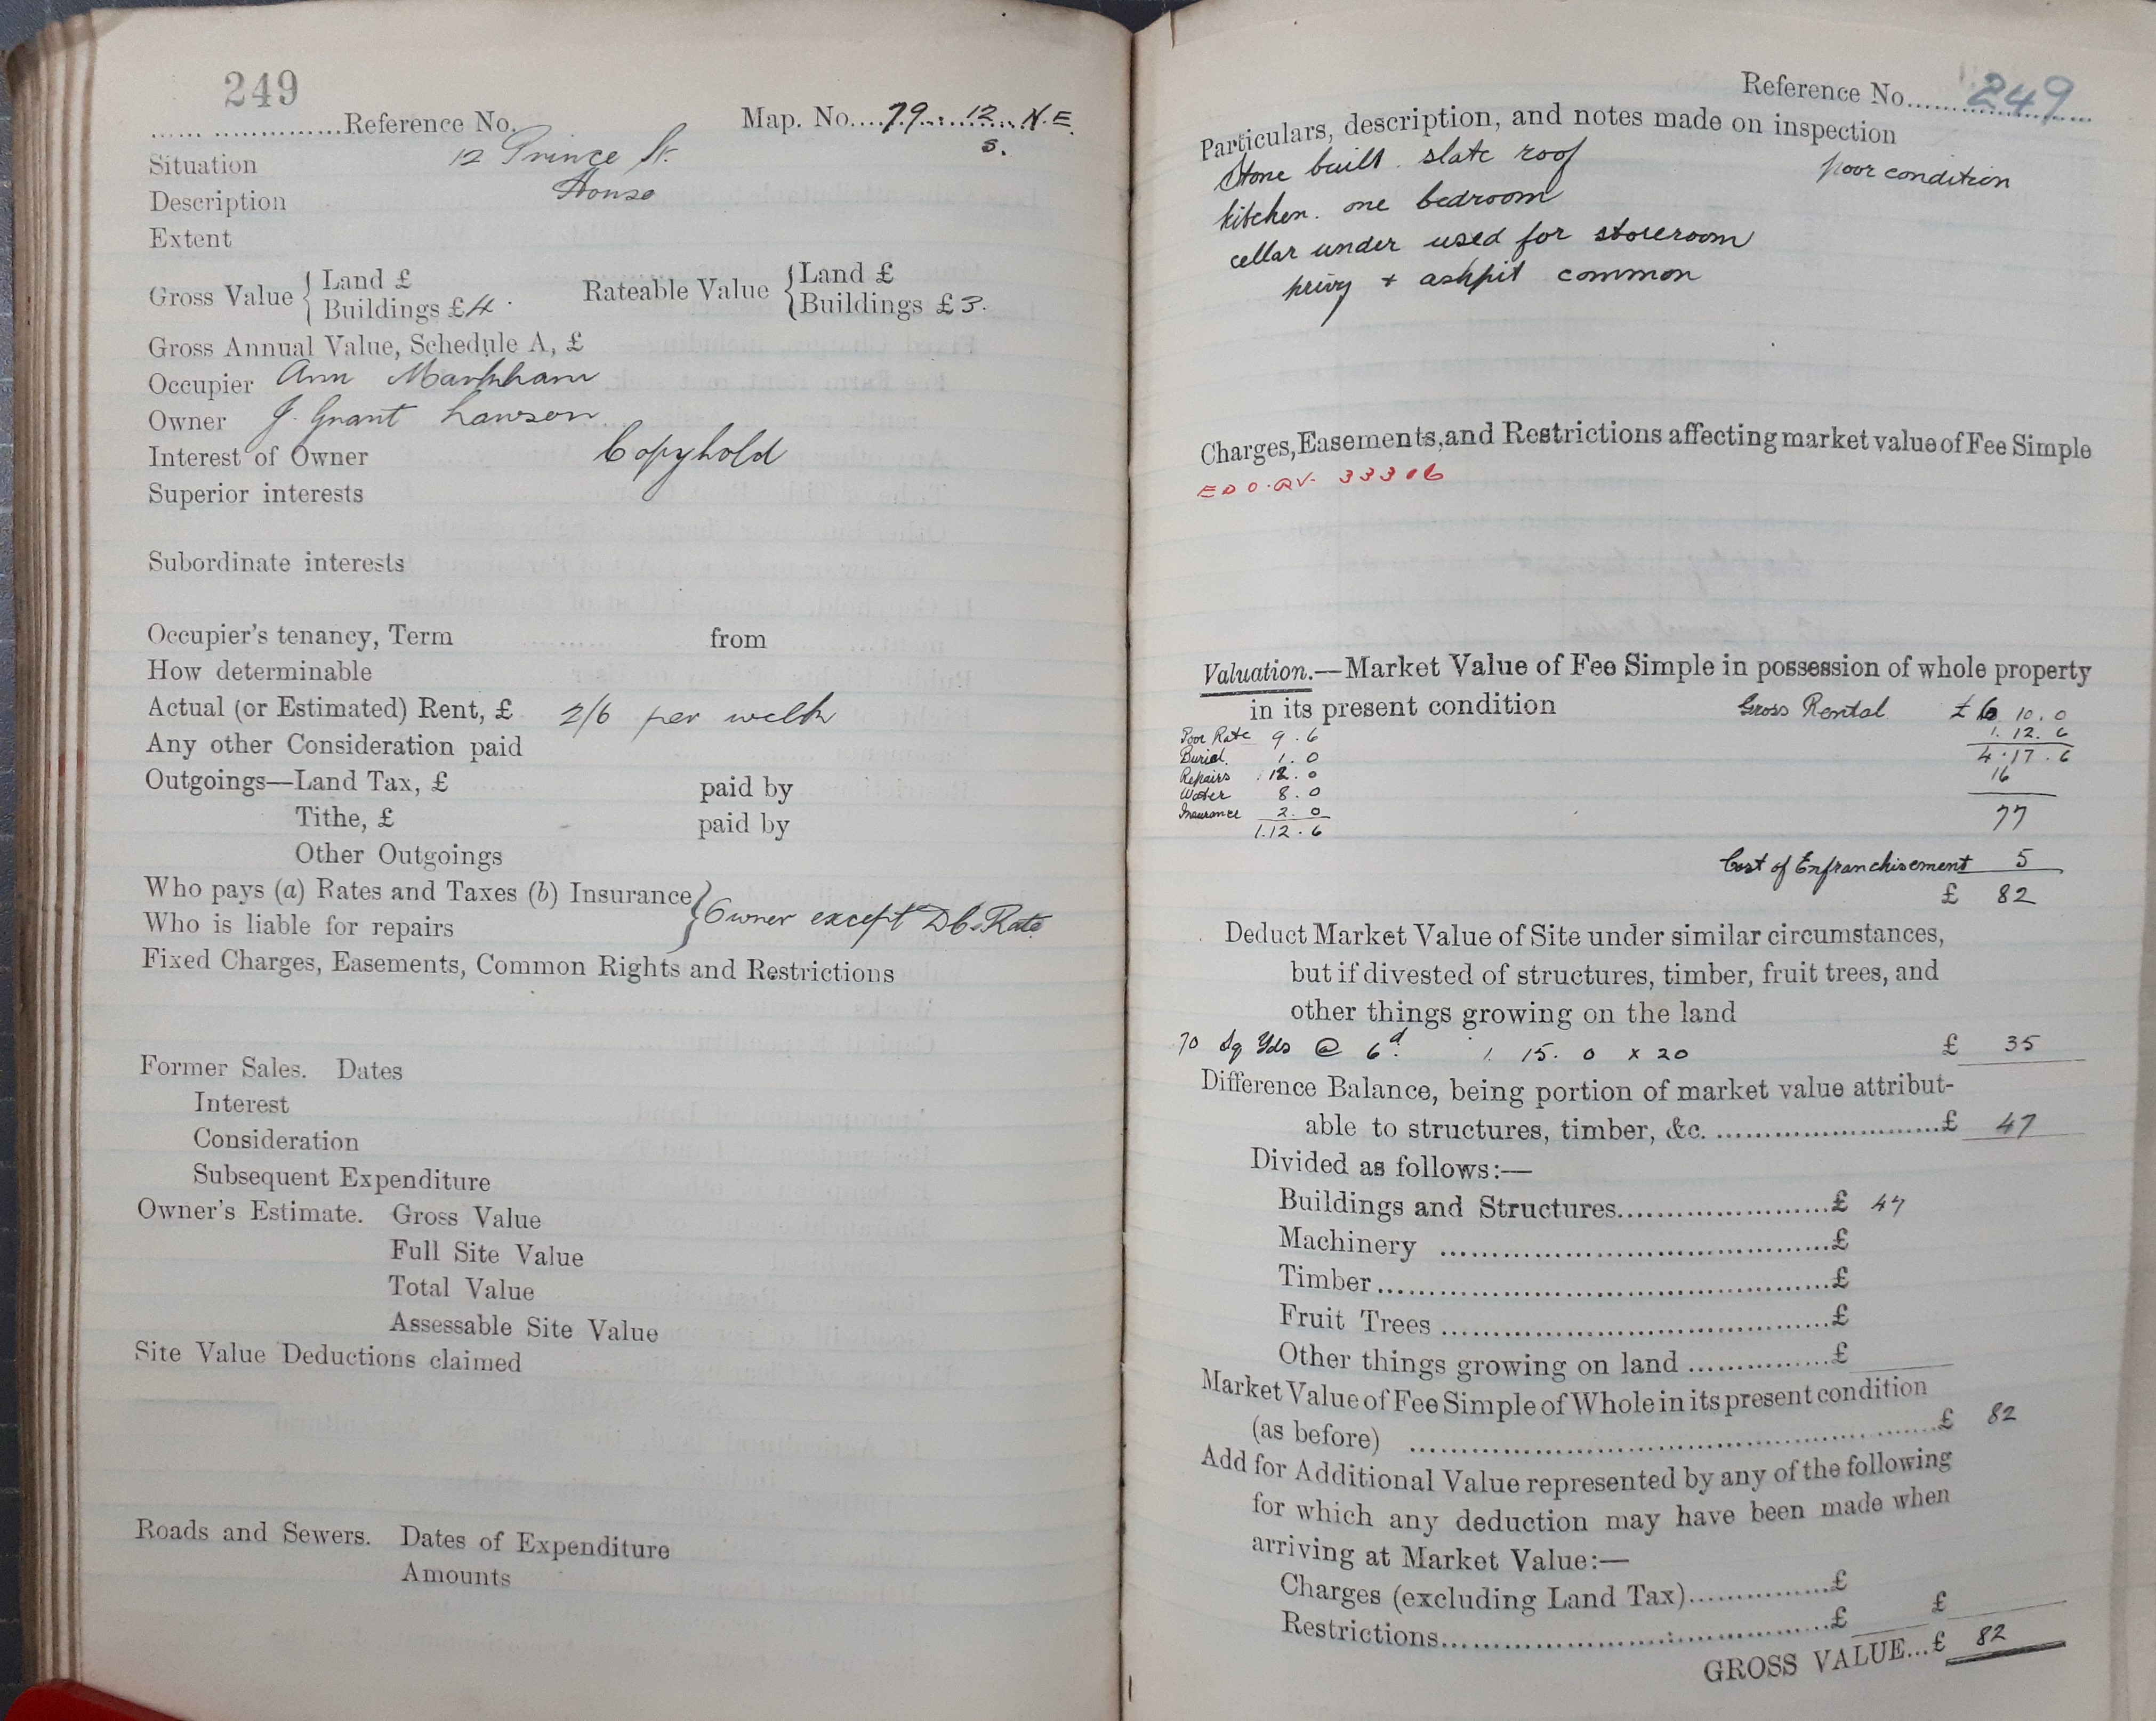 249
Reference No. Map. No. 79 12 N.E.
s.
Situation 12 Prince St.
Description House
Extent
Gross Value { Land £
Buildings £4 . Rateable Value { Land £
Buildings £3.
Gross Annual Value, Schedule A, £
Occupier Ann Markham
Owner J. Grant Lawson
Interest of Owner Copyhold
Superior interests
Subordinate interests
Occupier's tenancy, Term from
How determinable
Actual (or Estimated) Rent, £ 2/6 per week
Any other Consideration paid
Outgoings—Land Tax, £ paid by
Tithe, £ paid by
Other Outgoings
Who pays (a) Rates and Taxes (b) Insurance
Who is liable for repairs } Owner except D C. Rate
Fixed Charges, Easements, Common Rights and Restrictions
Former Sales. Dates
Interest
Consideration
Subsequent Expenditure
Owner's Estimate. Gross Value
Full Site Value
Total Value
Assessable Site Value
Site Value Deductions claimed
Roads and Sewers. Dates of Expenditure
Amounts
Reference No. 249
Particulars, description, and notes made on inspection
Stone built. slate roof poor condition
kitchen. one bedroom
cellar under used for storeroom
privy + ashpit common
Charges, Easements, and Restrictions affecting market value of Fee Simple
33306
Valuation.—Market Value of Fee Simple in possession of whole property
in its present condition Gross Rental £6 10. 0
Poor Rate 9 . 6 1. 12. 6
Burial 1. 0 4.17.6
Repairs 12. 0 16
Water 8. 0
Insurance 2. 0 77
1.12.6
Cost of Enfranchisement 5
£ 82
Deduct Market Value of Site under similar circumstances,
but if divested of structures, timber, fruit trees, and
other things growing on the land
70 Sq Yds @ 6d. 1. 15. 0 x 20 £ 35
Difference Balance, being portion of market value attribut-
able to structures, timber, &c. £ 47
Divided as follows:—
Buildings and Structures £ 47
Machinery £
Timber £
Fruit Trees £
Other things growing on land £
Market Value of Fee Simple of Whole in its present condition
(as before) £ 82
Add for Additional Value represented by any of the following
for which any deduction may have been made when
arriving at Market Value:—
Charges (excluding Land Tax) £
Restrictions £ £
GROSS VALUE...£ 82